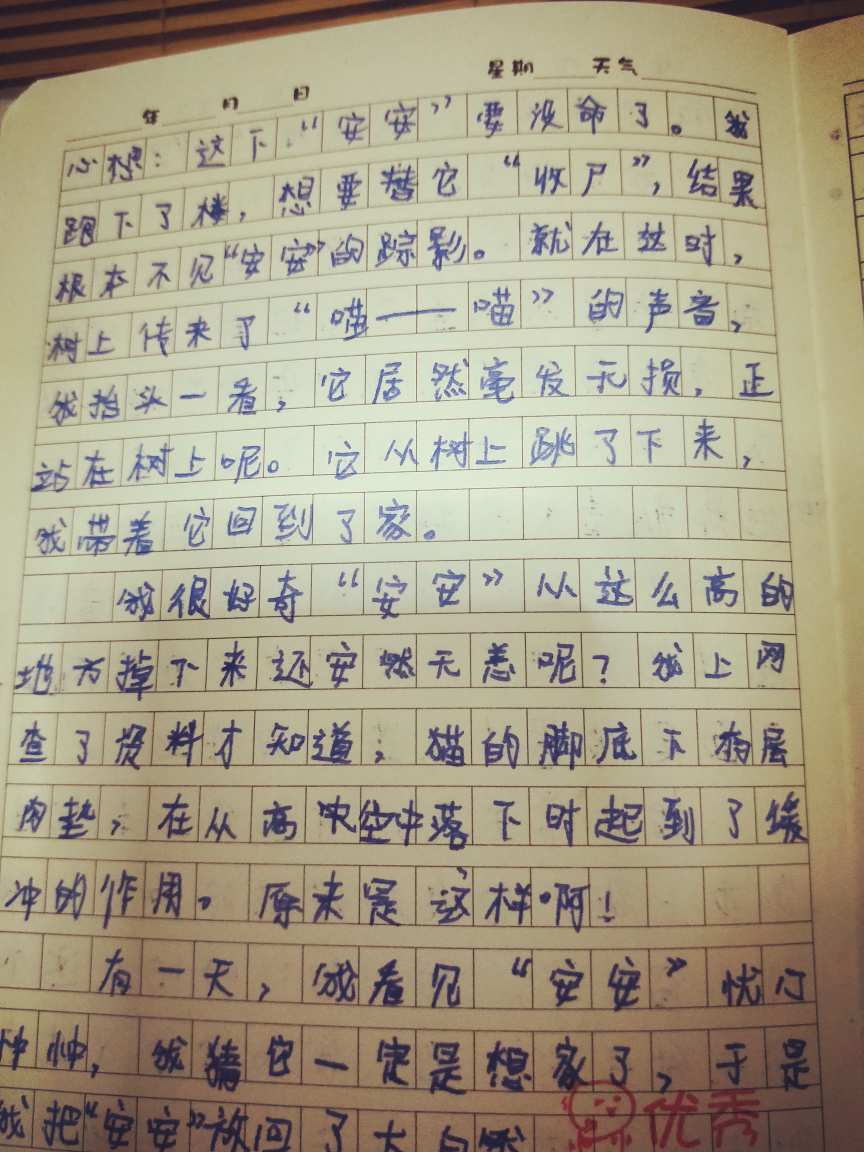 星期 天气
年 月 日
心想：这下“安安”要没命了。我
跑下了楼，想要替它“收尸”，结果
根本不见“安安”的踪影。就在这时，
树上传来了“喵——喵”的声音，
我抬头一看，它居然毫发无损，正
站在树上呢。它从树上跳了下来，
我带着它回到了家。
我很好奇“安安”从这么高的
地方掉下来还安然无恙呢？我上网
查了资料才知道，猫的脚底下有层
肉垫，在从高空中落下时起到了缓
冲的作用。原来是这样啊！
有一天，我看见“安安”忧心
忡忡，我猜它一定是想家了，于是
我把“安安”放回了大自然
优秀